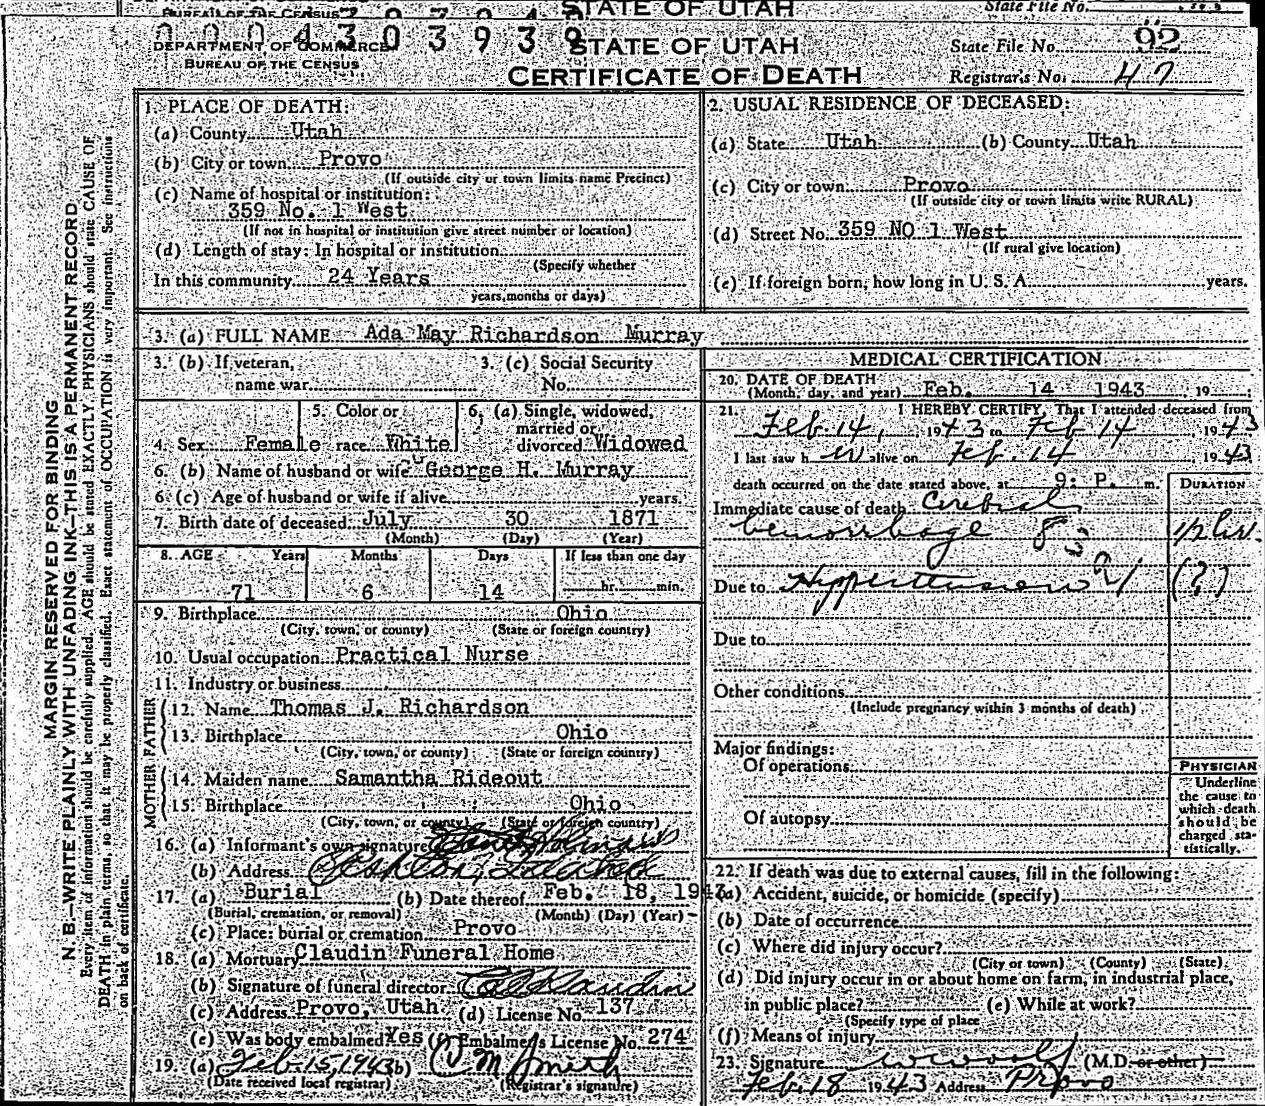 BUREAU OF THE CENSUS
STATE OF UTAH
State File No.
0004303939
DEPARTMENT OF COMMERCE
BUREAU OF THE CENSUS
STATE OF UTAH
CERTIFICATE OF DEATH
State File No. 92
Registrar's No. 47
MARGIN RESERVED FOR BINDING
N. B.—WRITE PLAINLY WITH UNFADING INK—THIS IS A PERMANENT RECORD
Every item of information should be carefully supplied. AGE should be stated EXACTLY. PHYSICIANS should state CAUSE OF
DEATH in plain terms, so that it may be properly classified. Exact statement of OCCUPATION is very important. See instructions
on back of certificate.
1. PLACE OF DEATH:
(a) County Utah
(b) City or town Provo
(If outside city or town limits name Precinct)
(c) Name of hospital or institution:
359 No. 1 West
(If not in hospital or institution give street number or location)
(d) Length of stay: In hospital or institution
(Specify whether
In this community 24 Years
years, months or days)
2. USUAL RESIDENCE OF DECEASED:
(a) State Utah (b) County Utah
(c) City or town Provo
(If outside city or town limits write RURAL)
(d) Street No. 359 NO 1 West
(If rural give location)
(e) If foreign born, how long in U. S. A. years.
3. (a) FULL NAME Ada May Richardson Murray
3. (b) If veteran, 3. (c) Social Security
name war No.
4. Sex Female 5. Color or race White 6. (a) Single, widowed, married or divorced Widowed
6. (b) Name of husband or wife George H. Murray
6. (c) Age of husband or wife if alive years.
7. Birth date of deceased July 30 1871
(Month) (Day) (Year)
8. AGE Years Months Days If less than one day
71 6 14 hr. min.
9. Birthplace Ohio
(City, town, or county) (State or foreign country)
10. Usual occupation Practical Nurse
11. Industry or business
FATHER
12. Name Thomas J. Richardson
13. Birthplace Ohio
(City, town, or county) (State or foreign country)
MOTHER
14. Maiden name Samantha Rideout
15. Birthplace Ohio
(City, town, or county) (State or foreign country)
16. (a) Informant's own signature
(b) Address
17. (a) Burial (b) Date thereof Feb. 18, 1943
(Burial, cremation, or removal) (Month) (Day) (Year)
(c) Place: burial or cremation Provo
18. (a) Mortuary Claudin Funeral Home
(b) Signature of funeral director
(c) Address Provo, Utah (d) License No. 137
(e) Was body embalmed Yes (f) Embalmer's License No. 274
19. (a) Feb. 15, 1943 (b) C M Smith
(Date received local registrar) (Registrar's signature)
MEDICAL CERTIFICATION
20. DATE OF DEATH
(Month, day, and year) Feb. 14 1943, 19
21. I HEREBY CERTIFY, That I attended deceased from
Feb 14, 1943 to Feb 14, 1943
I last saw her alive on Feb. 14 1943
death occurred on the date stated above, at 9: P. m.
DURATION
Immediate cause of death Cerebral
hemorrhage 1/2 hr.
83a1
Due to Hyppertension (?)
Due to
Other conditions
(Include pregnancy within 3 months of death)
Major findings:
Of operations
Of autopsy
PHYSICIAN
Underline
the cause to
which death
should be
charged sta-
tistically.
22. If death was due to external causes, fill in the following:
(a) Accident, suicide, or homicide (specify)
(b) Date of occurrence
(c) Where did injury occur?
(City or town) (County) (State)
(d) Did injury occur in or about home on farm, in industrial place,
in public place? (e) While at work?
(Specify type of place
(f) Means of injury
23. Signature W Woolf (M.D. or other)
Feb. 18 1943 Address Provo